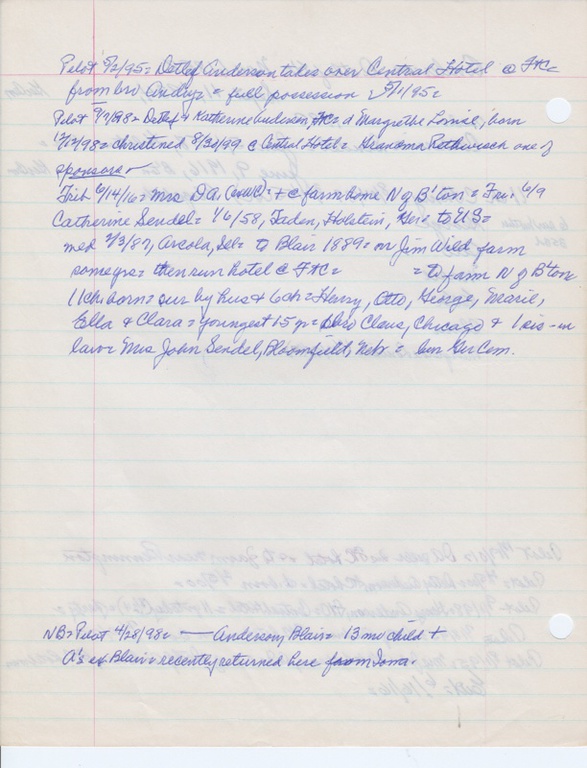 Pilot 5/2/95= Detlef Anderson takes over Central Hotel @ FtC=
from bro Andy= full possession 5/1/95=
Pilot 9/7/98= Detlef & Katherine Anderson, FtC= d Margrethe Louise, born
12/12/98= christened 8/20/99 @ Central Hotel= Grandma Rathwisch one of
sponsors
Trib 6/14/16= Mrs DA, + @ farm home N of B'ton= Fri. 6/9
Catherine Sendel= 1/6/58, Holstein, Ger= to US=
med 2/3/87, Avoca, to Blair 1889= on Jim Wild farm
some yrs= then run hotel @ FtC= = to farm N of B'ton
11 ch born= sur by hus & 6 ch= Henry, Otto, George, Marie,
Ella & Clara= youngest 15 yr= bro Claus, Chicago & 1 sis-in
law= Mrs John Sendel, Bloomfield, Nebr= bur Ger Cem.
NB= Pilot 4/28/98= — Anderson, Blair= 13 mo child +
A's of Blair= recently returned here from Iowa.